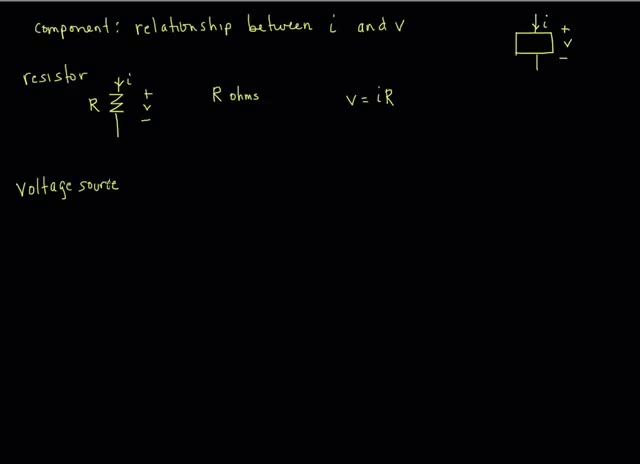 component: relationship between i and v
i
+
v
-
resistor
i
R
+
v
-
R ohms
v = iR
voltage source